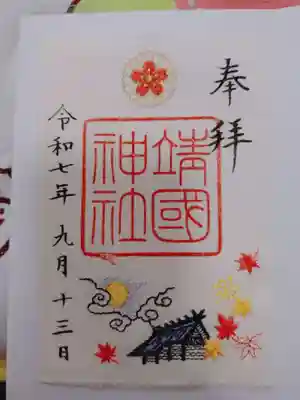 奉拝
靖國
神社
令和七年 九月 十三日